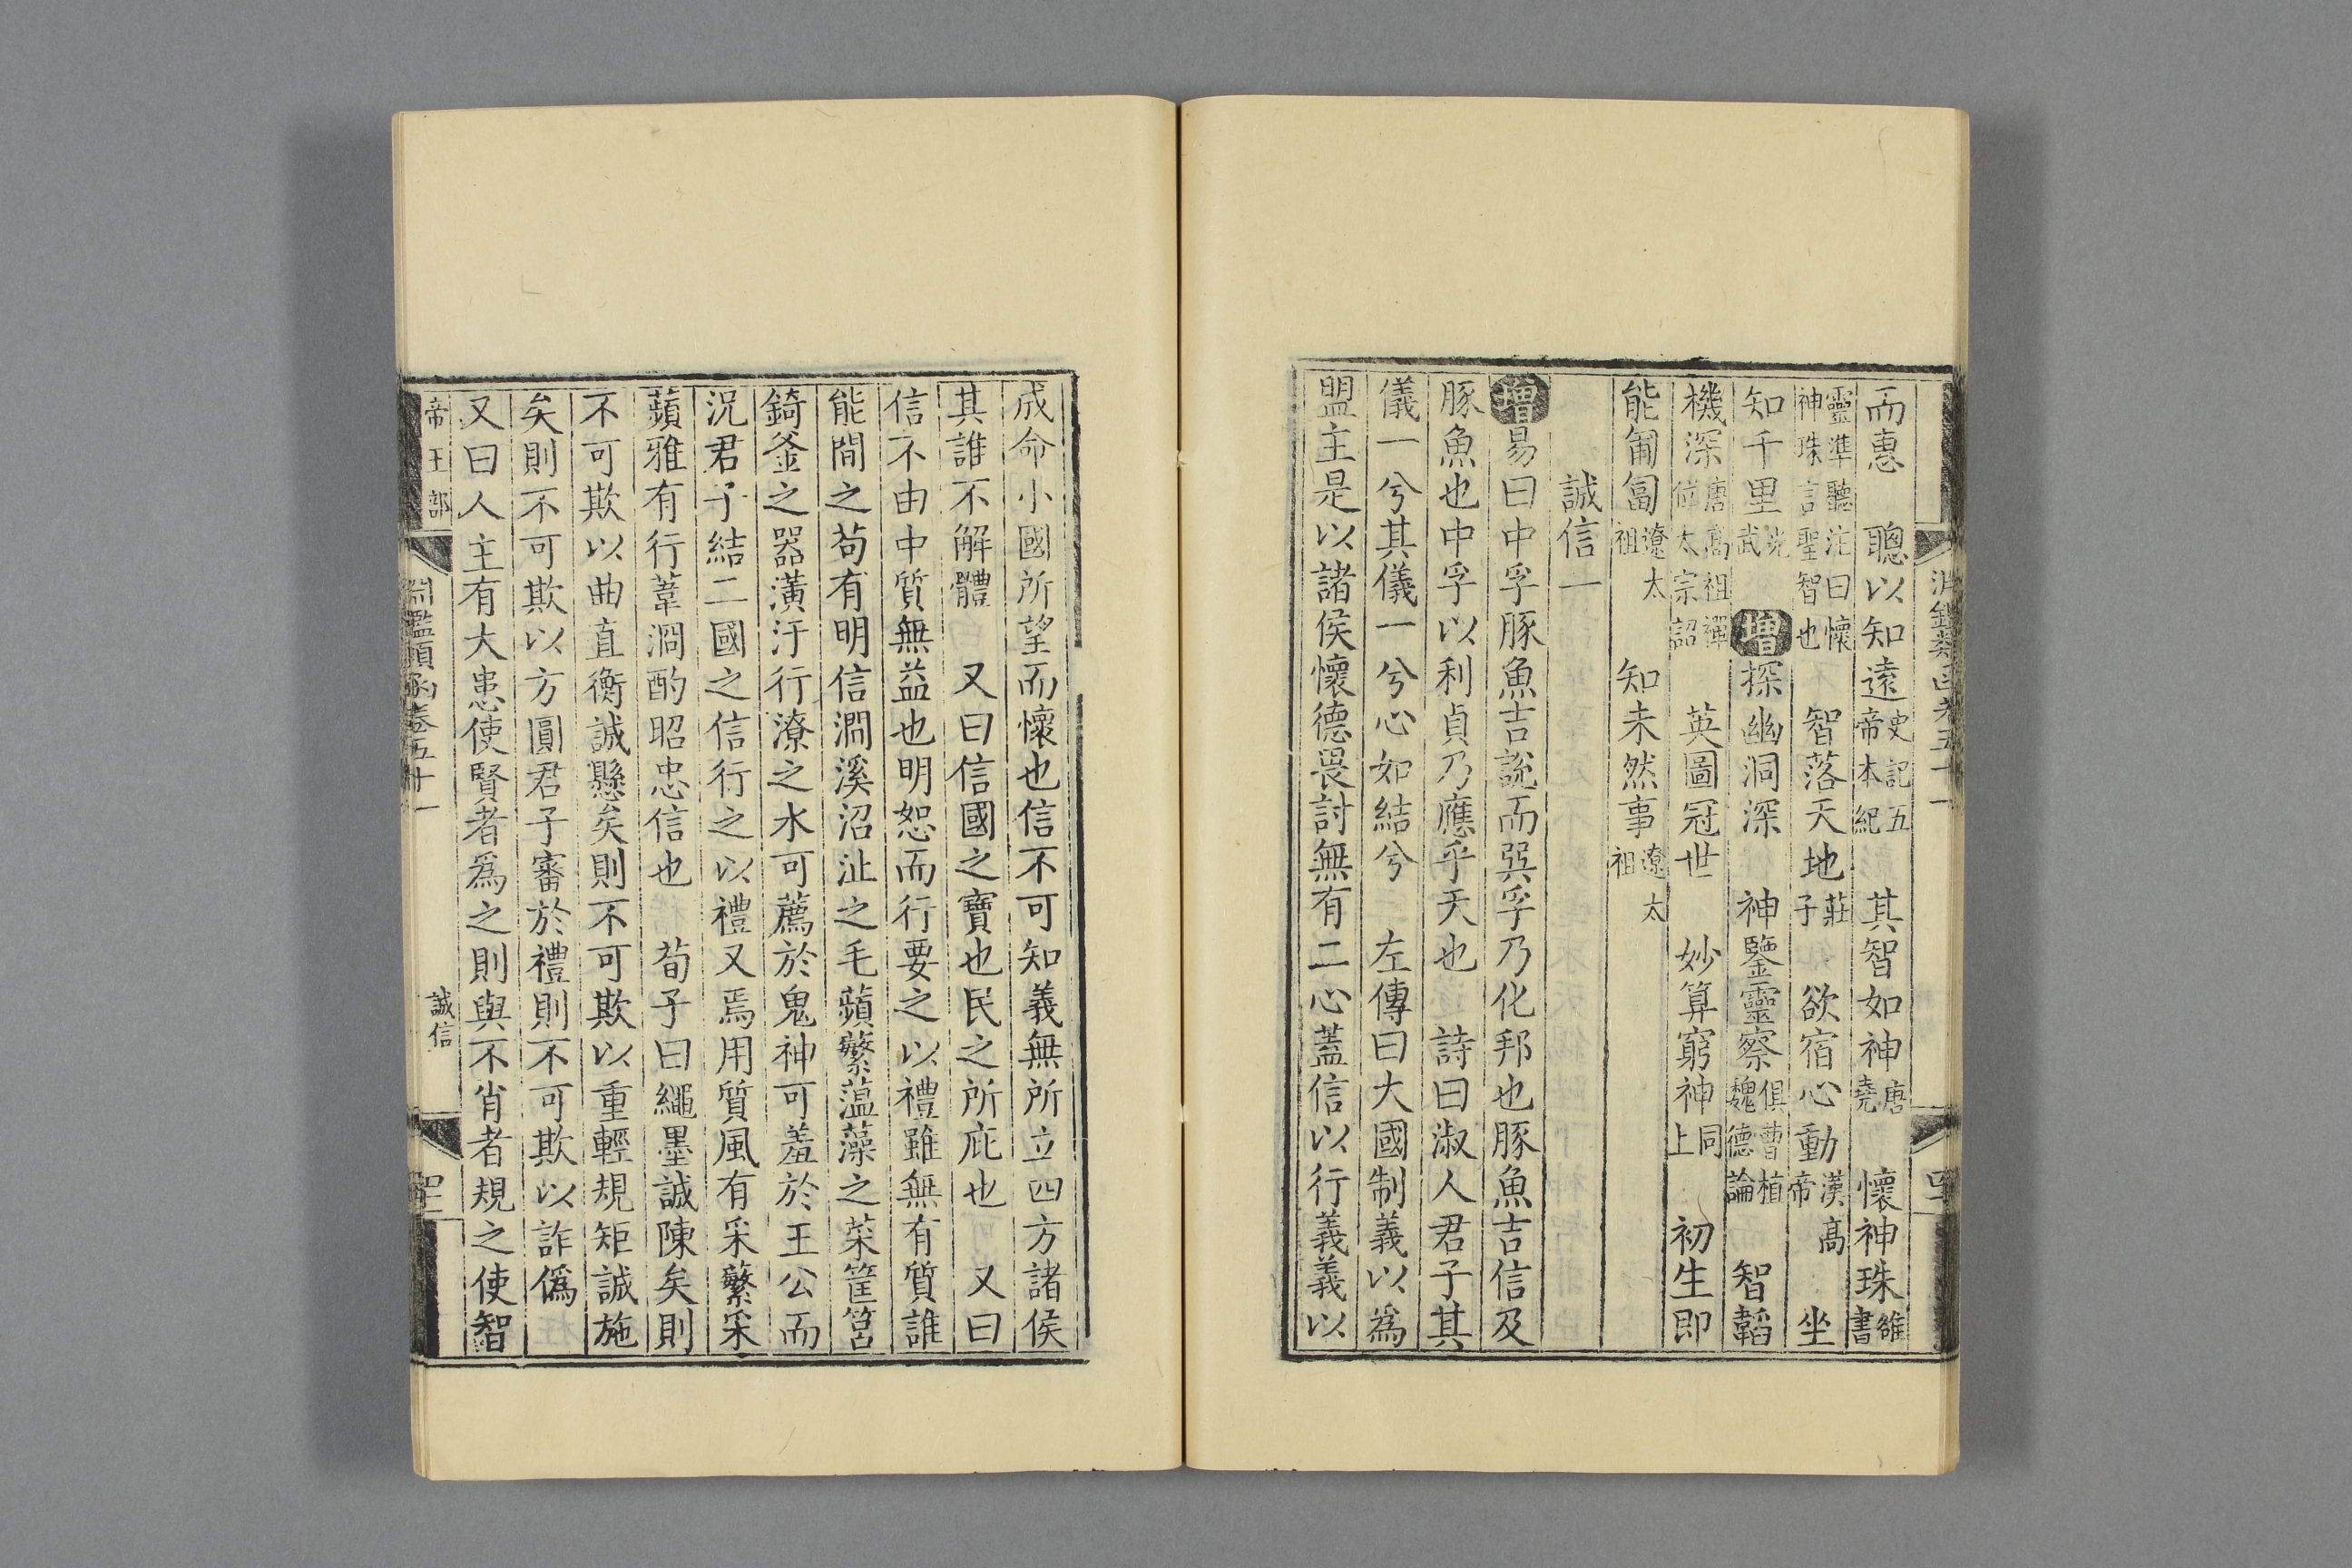 淵鑑類函卷五十一
而惠　聰以知遠史記五帝本紀　其智如神唐堯　懷神珠雒書
靈準聽注曰懷神珠言聖智也　智落天地莊子　欲宿心動漢高帝　坐
知千里光武　增探幽洞深　神鑒靈察俱曹植魏德論　智韜
機深唐高祖禪位太宗詔　英圖冠世　妙算窮神同上　初生即
能匍匐遼太祖　知未然事遼太祖
誠信一
增易曰中孚豚魚吉說而巽孚乃化邦也豚魚吉信及
豚魚也中孚以利貞乃應乎天也　詩曰淑人君子其
儀一兮其儀一兮心如結兮　左傳曰大國制義以爲
盟主是以諸侯懷德畏討無有二心蓋信以行義義以
成命小國所望而懷也信不可知義無所立四方諸侯
其誰不解體　又曰信國之寶也民之所庇也　又曰
信不由中質無益也明恕而行要之以禮雖無有質誰
能間之苟有明信澗溪沼沚之毛蘋蘩薀藻之菜筐筥
錡釜之器潢汙行潦之水可薦於鬼神可羞於王公而
況君子結二國之信行之以禮又焉用質風有采蘩采
蘋雅有行葦泂酌昭忠信也　荀子曰繩墨誠陳矣則
不可欺以曲直衡誠懸矣則不可欺以重輕規矩誠施
矣則不可欺以方圓君子審於禮則不可欺以詐僞
又曰人主有大患使賢者爲之則與不肖者規之使智
帝王部　淵鑑類函卷五十一　誠信